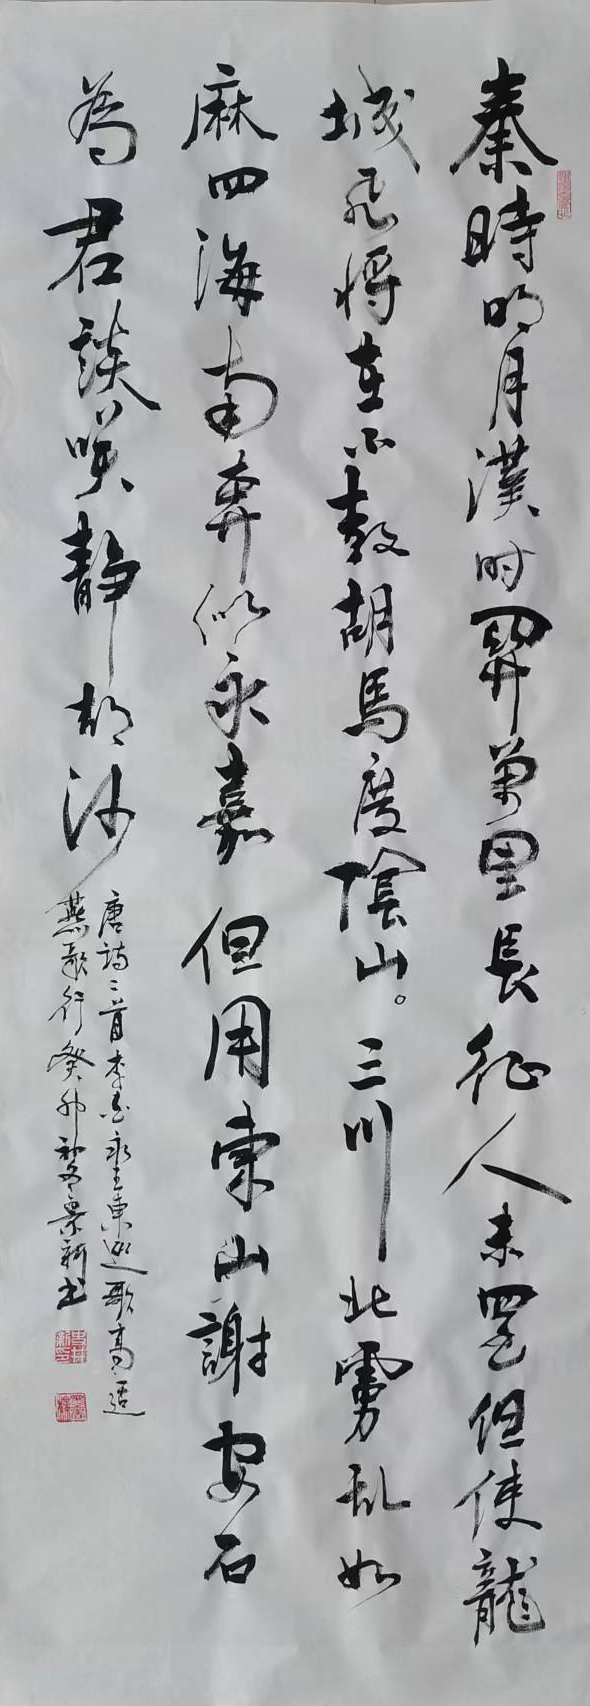 秦時明月漢时関萬里長征人未罷但使龍
城飛将在不教胡馬度陰山。三川北虏乱如
麻四海南奔似永嘉但用東山謝安石
為君談笑静胡沙
唐詩二首李白永王東巡歌高適
燕歌行癸卯初冬景新书